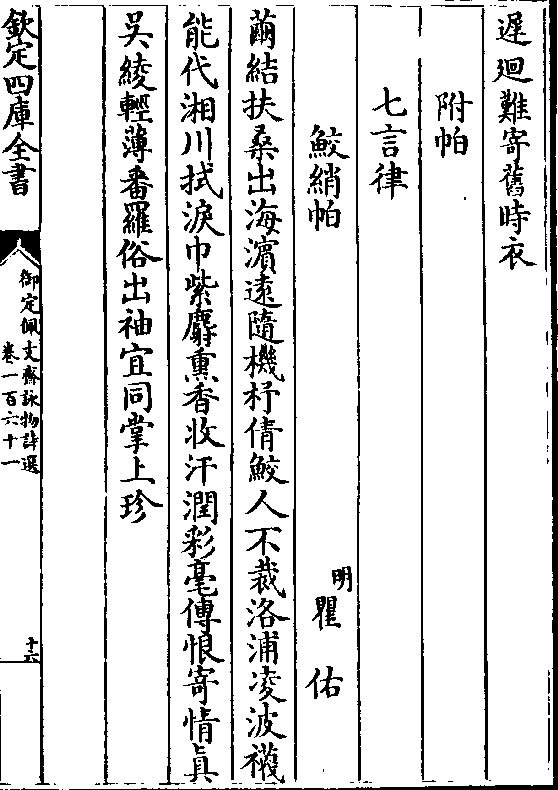 遲廻難寄舊時衣
附帕
七言律
鮫綃帕
明瞿佑
繭結扶桑出海濵逺隨機杼倩鮫人不裁洛浦凌波襪
能代湘川拭淚巾紫麝熏香收汗潤彩毫傳恨寄情真
吳綾輕薄番羅俗出袖宜同掌上珍
欽定四庫全書
御定佩文齋詠物詩選
卷一百六十一
十六